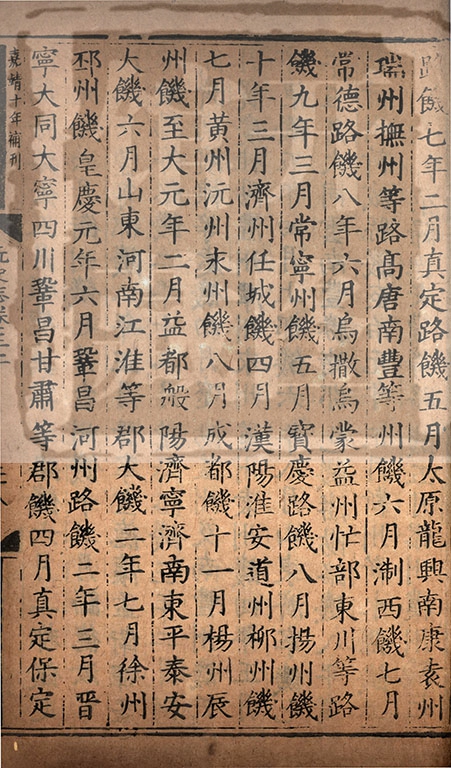 路饑七年二月真定路饑五月太原龍興南康袁州
瑞州撫州等路髙唐南豐等州饑六月淛西饑七月
常德路饑八年六月烏撒烏蒙益州忙部東川等路
饑九年三月常寧州饑五月寳慶路饑八月揚州饑
十年三月濟州任城饑四月漢陽淮安道州柳州饑
七月黄州沅州永州饑八月成都饑十一月楊州辰
州饑至大元年二月益都般陽濟寧濟南東平泰安
大饑六月山東河南江淮等郡大饑二年七月徐州
邳州饑皇慶元年六月鞏昌河州路饑二年三月晋
寧大同大寧四川鞏昌甘肅等郡饑四月真定保定
嘉靖十年補刊